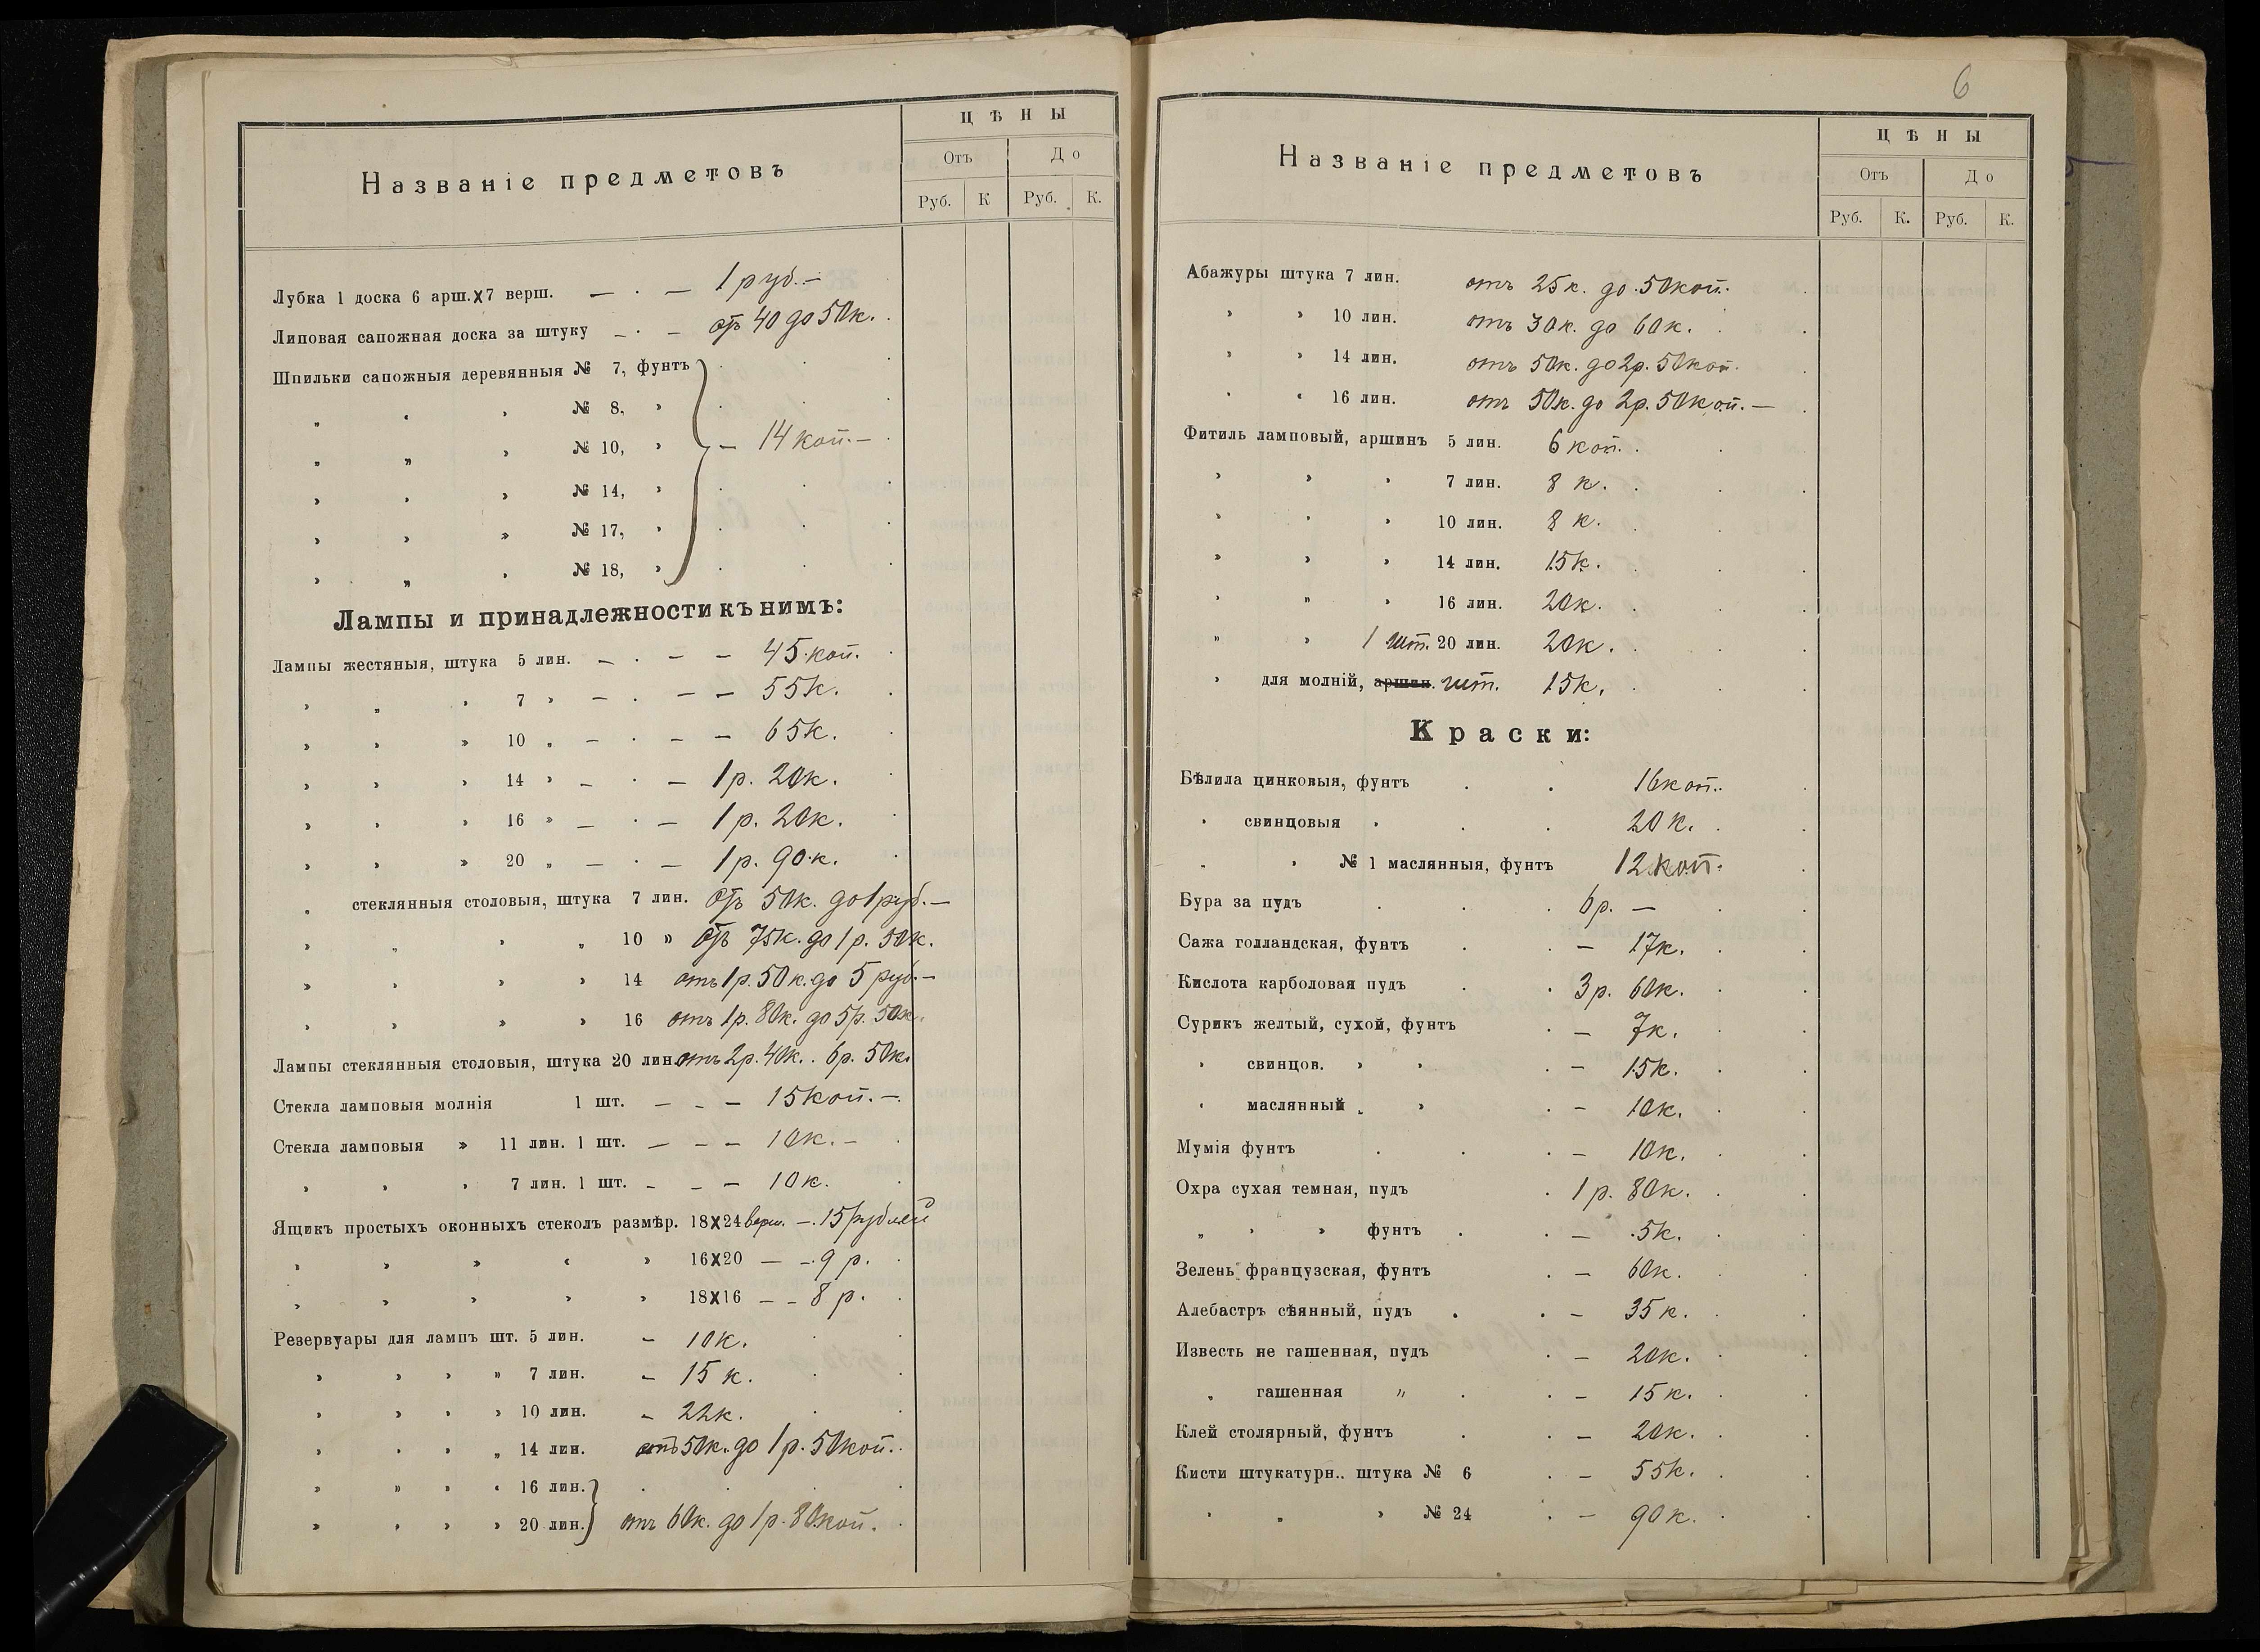 Названіе предметовъ
ЦѢНЫ
Отъ До
Руб. К Руб. К.
Лубка 1 доска 6 арш.X7 верш. — · — 1 руб.—
Липовая сапожная доска за штуку — · — отъ 40 до 50к.
Шпильки сапожныя деревянныя № 7, фунтъ
„ „ „ № 8, »
„ „ „ № 10, » — 14 коп.—
„ „ „ № 14, »
„ „ „ № 17, »
„ „ „ № 18, »
Лампы и принадлежности къ нимъ:
Лампы жестяныя, штука 5 лин. — · — — 45 коп.
„ „ „ 7 » — · — — 55к.
„ „ » 10 „ — · — — 65к.
„ „ „ 14 » — · — 1 р. 20к.
„ „ „ 16 » — · — 1 р. 20к.
„ „ » 20 „ — · — 1 р. 90 к.
„ стеклянныя столовыя, штука 7 лин. отъ 50к. до 1 руб.—
„ „ „ „ 10 » отъ 75к. до 1 р. 50к.
„ „ „ „ 14 отъ 1 р. 50 к. до 5 руб.—
„ „ „ „ 16 отъ 1 р. 80к. до 5 р. 50к.
Лампы стеклянныя столовыя, штука 20 лин. отъ 2 р. 40к. . 6 р. 50к.
Стекла ламповыя молнія 1 шт. — – — 15 коп.—
Стекла ламповыя » 11 лин. 1 шт. — – — 10к.—
„ „ „ 7 лин. 1 шт. – – — 10к.
Ящикъ простыхъ оконныхъ стеколъ размѣр. 18X24 верш. —. 15 рублей
„ „ » „ » 16X20 — –. 9 р.
„ „ „ „ „ 18X16 — – 8 р.
Резервуары для лампъ шт. 5 лин. – 10к.
„ „ „ » 7 лин. – 15 к.
„ „ „ „ 10 лин. – 22к.
„ „ „ „ 14 лин. отъ 50к. до 1 р. 50коп.
„ » „ „ 16 лин.
„ „ „ „ 20 лин. отъ 60к. до 1 р. 80коп.
6
Названіе предметовъ
ЦѢНЫ
Отъ До
Руб. К. Руб. К.
Абажуры штука 7 лин. отъ 25 к. до 50коп.
» » 10 лин. отъ 30к. до 60к.
» » 14 лин. отъ 50к. до 2р. 50коп.
„ „ 16 лин. отъ 50к. до 2р. 50коп.—
Фитиль ламповый, аршинъ 5 лин. 6 коп.
» » » 7 лин. 8 к.
» » » 10 лин. 8 к.
» » » 14 лин. 15к.
» » » 16 лин. 20к.
» » 1 шт. 20 лин. 20к.
» для молній, аршин. шт. 15к.
Краски:
Бѣлила цинковыя, фунтъ 16коп.
„ свинцовыя „ 20 к.
„ » № 1 маслянныя, фунтъ 12коп.
Бура за пудъ 6 р. —
Сажа голландская, фунтъ — 17к.
Кислота карболовая пудъ 3 р. 60к.
Сурикъ желтый, сухой, фунтъ — 7к.
» свинцов. » » — 15к.
„ маслянный „ » — 10к.
Мумія фунтъ — 10к.
Охра сухая темная, пудъ 1 р. 80к.
„ » » фунтъ — 5к.
Зелень французская, фунтъ — 60к.
Алебастръ сѣянный, пудъ — 35 к.
Известь не гашенная, пудъ — 20к.
„ гашенная „ — 15 к.
Клей столярный, фунтъ — 20к.
Кисти штукатурн.. штука № 6 — 55к.
„ „ » № 24 — 90 к.